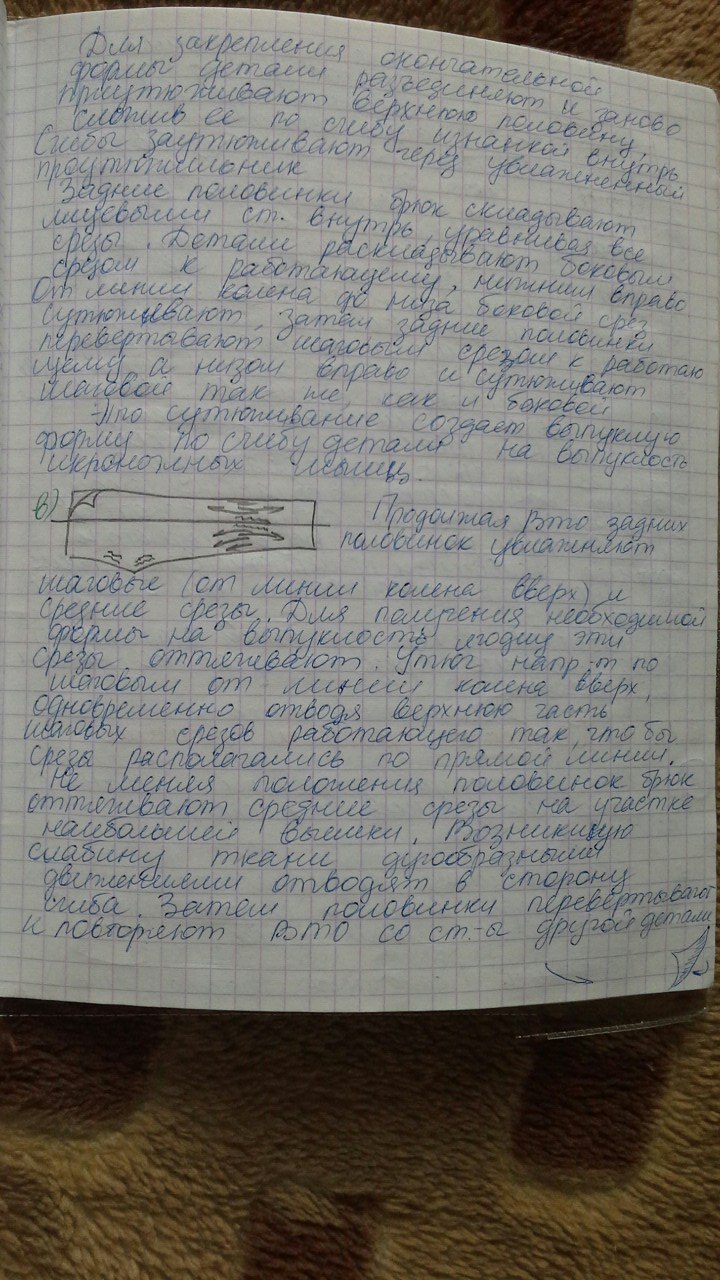 Для закрепления окончательной
формы детали разъединяют и заново
приутюживают верхнюю половину,
сложив ее по сгибу изнанкой внутрь
Сгибы заутюживают через увлажненный
проутюжильник
Задние половинки брюк складывают
лицевыми ст. внутрь, уравнивая все
срезы. Детали раскладывают боковым
срезом к работающему, нижним вправо
От линии колена до низа боковой срез
сутюживают, затем задние половинки
перевертывают шаговым срезом к работаю
щему а низом вправо и сутюживают
шаговой так же, как и боковой
Это сутюживание создает выпуклую
форму по сгибу детали на выпуклость
икроножных мышц.
в)
Продолжая ВТО задних
половинок увлажняют
шаговые (от линии колена вверх) и
средние срезы. Для получения необходимой
формы на выпуклость ягодиц эти
срезы оттягивают. Утюг напр-т по
шаговым от линии колена вверх,
одновременно отводя верхнюю часть
шаговых срезов работающего так, что бы
срезы располагались по прямой линии.
Не меняя положения половинок брюк
оттягивают средние срезы на участке
наибольшей вышки. Возникшую
слабину ткани дугообразными
движениями отводят в сторону
сгиба. Затем половинки перевертывают
и повторяют ВТО со ст.-ы другой детали